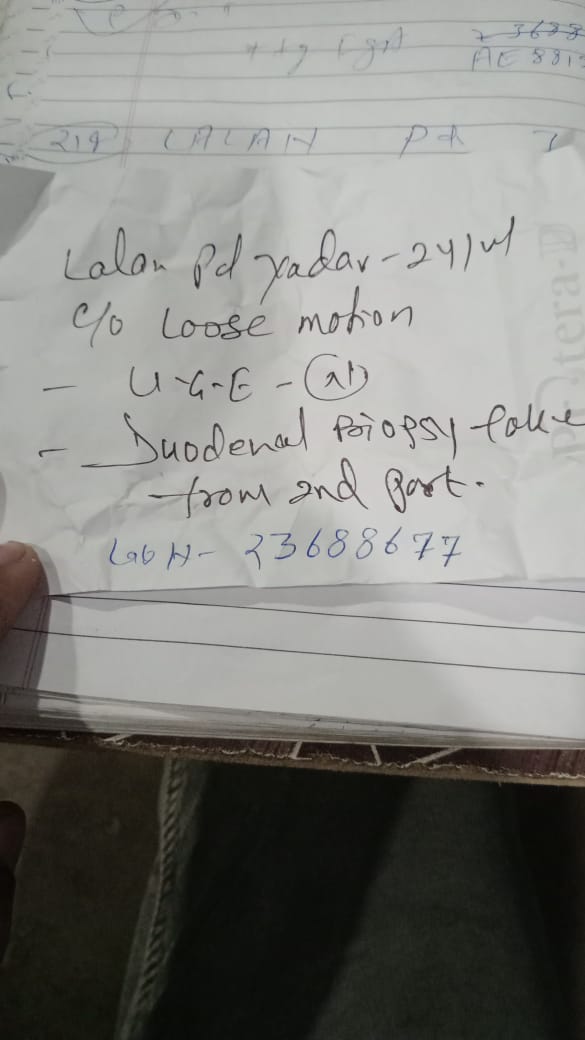 23688
AE 881
219 LALAN Pd
Lalan Pd Yadav - 24/M
C/O Loose motion
- U-G-E - (N)
- Duodenal Biopsy take
from 2nd Part.
Lab N- 23688677